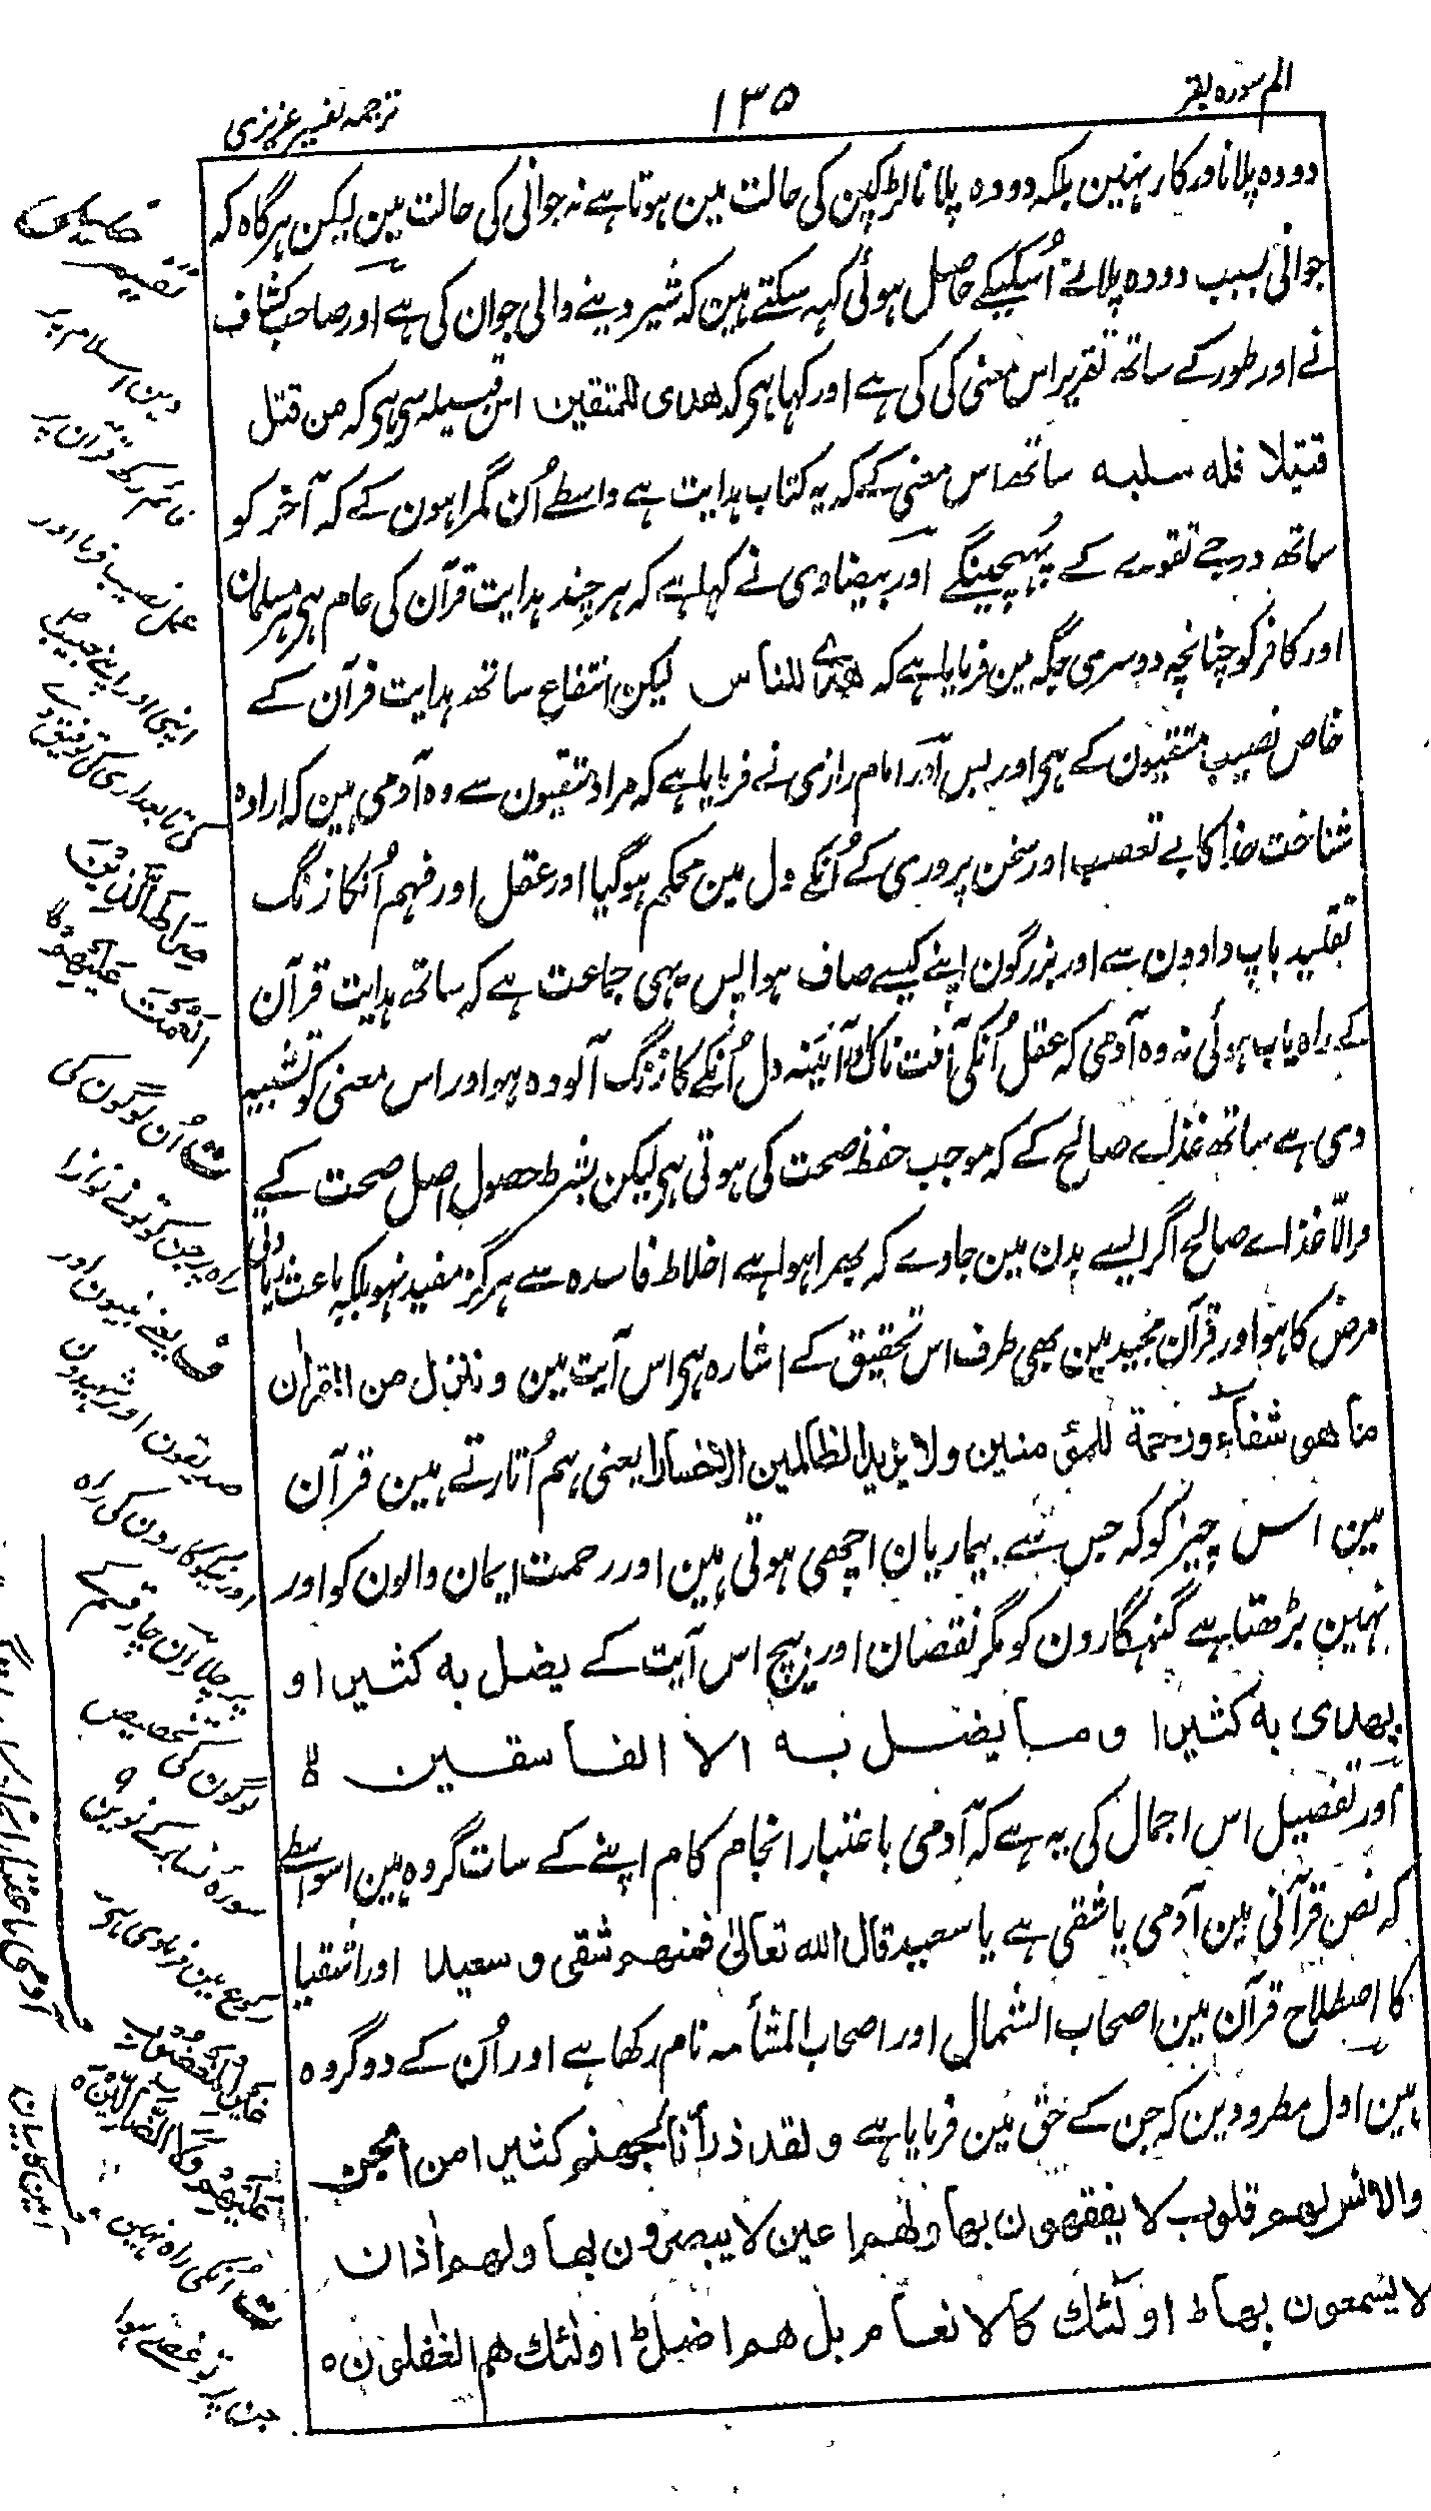 الم سورہ بقر
۱۳۵
ترجمہ تفسیر عزیزی
دودہ پلانا درکار نہین بلکہ دودہ پلانا لڑکپن کی حالت مین ہوتا ہے نہ جوانی کی حالت مین لیکن ہرگاہ کہ
جوانی بسبب دودہ پلانے اُسیکے حاصل ہوئی کہہ سکتے ہین کہ شیر دینے والی جوان کی ہے اور صاحب کشاف
نے اور طور کے ساتھ تقریر اس معنی کی کی ہے اور کہا ہی کہ ھدی للمتقین اس قبیلہ سی ہی کہ من قتل
قتیلا فلہ سلبہ ساتھ اس معنی کے کہ یہ کتاب ہدایت ہے واسطے اُن گمراہون کے کہ آخر کو
ساتھ درجے تقوے کے پہُچینگے اور بیضاوی نے کہا ہے کہ ہر چند ہدایت قرآن کی عام ہی ہر مسلمان
اور کافر کو چنانچہ دوسری جگہ مین فرمایا ہے کہ ھدی للناس لیکن انتفاع ساتھ ہدایت قرآن کے
خاص نصیب متقیون کے ہی اور بس اور امام رازی نے فرمایا ہے کہ مراد متقیون سے وہ آدمی ہین کہ ارادہ
شناخت خدا کا بے تعصب اور سخن پروری کے اُنکے دل مین محکم ہوگیا اور عقل اور فہم اُنکا زنگ
تقلید باپ دادون سے اور بزرگون اپنے کیسے صاف ہوا پس یہی جماعت ہے کہ ساتھ ہدایت قرآن
کے راہ یاب ہوئی نہ وہ آدمی کہ عقل اُنکی آفت ناک اور آئینہ دل اُنکے کا زنگ آلودہ ہو اور اس معنی کو تشبیہ
دی ہے ساتھ غذاے صالح کے کہ موجب حفظ صحت کی ہوتی ہی لیکن بشرط حصول اصل صحت کے
والّا غذاے صالح اگر ایسے بدن مین جاوے کہ بھرا ہوا ہے اخلاط فاسدہ سے ہرگز مفید نہو بلکہ باعث زیادتی
مرض کا ہو اور قرآن مجید مین بھی طرف اس تحقیق کے اشارہ ہی اس آیت مین و ننزل من القران
ما ھو شفاء ورحمة للمؤمنین ولا یزید الظالمین الا خسارا یعنی ہم اُتارتے ہین قرآن
مین اس چیز کو کہ جس سے بیماریان اچھی ہوتی ہین اور رحمت ایمان والون کو اور
نہین بڑھتا ہے گنہگارون کو مگر نقصان اور بیچ اس آیت کے یضل بہ کثیرا و
یھدی بہ کثیرا و ما یضل بہ الا الفاسقین ہ
اور تفصیل اس اجمال کی یہ ہے کہ آدمی باعتبار انجام کام اپنے کے سات گروہ ہین اسواسطے
کہ نص قرآنی مین آدمی یا شقی ہے یا سعید قال اللہ تعالیٰ فمنھم شقی و سعید اور اشقیا
کا اصطلاح قرآن مین اصحاب الشمال اور اصحاب المشأمہ نام رکھا ہے اور اُن کے دو گروہ
ہین اول مطرودین کہ جن کے حق مین فرمایا ہے ولقد ذرأنا لجھنم کثیرا من الجن
والانس لھم قلوب لا یفقھون بھا ولھم اعین لا یبصرون بھا ولھم اٰذان
لا یسمعون بھا ط اولٰئک کالانعام بل ھم اضل ط اولٰئک ھم الغٰفلون ہ
دین اسلام پر
قائم رکھ قرآن پر
عمل نصیب فرما اور
اپنی اور اپنے حبیب
کی تابعداری کی توفیق دے
صِرَاطَ الَّذِیْنَ
اَنْعَمْتَ عَلَیْھِمْ
ت اُن لوگون کی
راہ پر جن کو تونے نوازا
ف یعنے نبیون اور
صدیقون اور شہیدون
اور نیکوکارون کی راہ
پر چلا ان چار قسم کے
لوگون کی تخصیص
سورہ نساء کے نوین
رکوع مین فرمادی ہی
غَیْرِ الْمَغْضُوْبِ
عَلَیْھِمْ وَلَا الضَّالِّیْنَ ہ
ت اُنکی راہ نہین
جن پر تو غصے ہوا